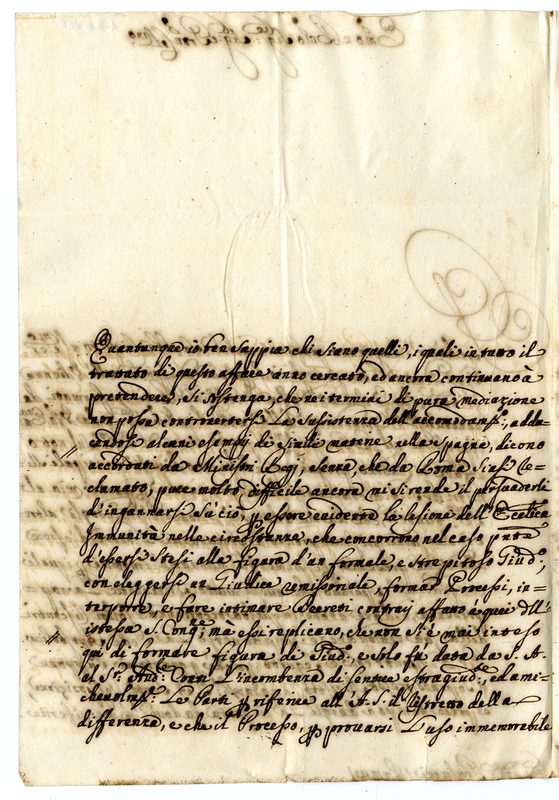 Quantunque io ben sappia chi siano quelli, i quali in tutto il
trattato di questo affare anno cercato, ed ancora continuano à
pretendere, si sostenga, che nei termini di pura mediazione
non possa controvertersi la sussistenza dell'accomodam.to, addu-
cendosi alcuni esempij di simili materie nella Spagna, dicono
accordati da Ministri Regj, senza che da Roma siasi re-
clamato, pure molto difficile ancora mi si rende il persuaderli
d'ingannarsi sù ciò, p essere evidente la lesione dell'Ecclica
Immunità nelle circostanze, che concorrono nel caso pnte
d'essersi stesi alla figura d'un formale, e strepitoso Giud.o,
con eleggersi un Giudice remissoriale, formar Processi, in=
terporre, e fare intimare Decreti contrarj affatto a quei dell'
istessa S. Cong.ne; mà essi replicano, che non si è mai inteso
qui di formare figura di Giud.o, e solo fù data da S. A.
al S.r Aud.re Conti l'incombenza di sentire estragiud.te, ed ami=
chevolm.te le Parti p riferire all'A. S. il ristretto della
differenza, e che il Processo, p provarsi l'uso immemorabile